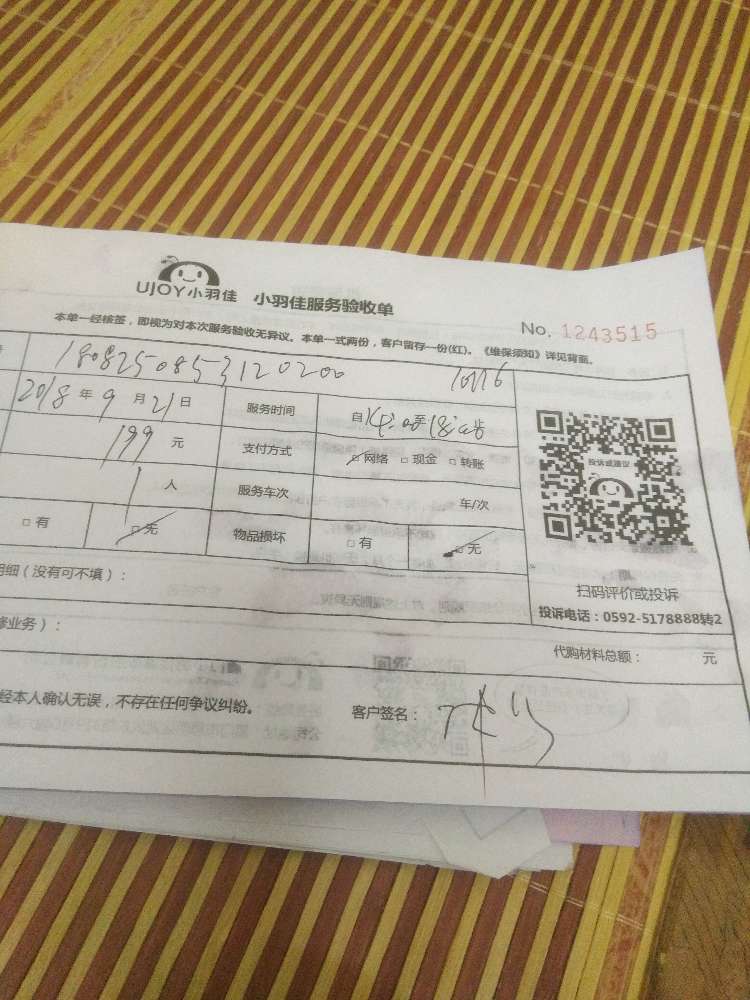 UJOY小羽佳 小羽佳服务验收单
No. 1243515
本单一经核签，即视为对本次服务验收无异议。本单一式两份，客户留存一份(红)。《维保须知》详见背面。
1808250853120200
2018年9月21日 服务时间 自14:00至18:00止
199元 支付方式 □网络 □现金 □转账
1人 服务车次 车/次
□有 □无 物品损坏 □有 □无
投诉或建议
扫码评价或投诉
投诉电话：0592-5178888转2
明细（没有可不填）：
修业务）： 代购材料总额： 元
经本人确认无误，不存在任何争议纠纷。 客户签名：